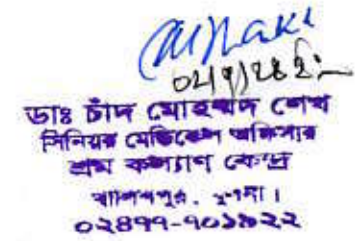 ডাঃ চাঁদ মোহাম্মদ শেখ
সিনিয়র মেডিকেল অফিসার
শ্রম কল্যাণ কেন্দ্র
খালিশপুর, খুলনা।
০২৪৭৭-৭০১৯২২